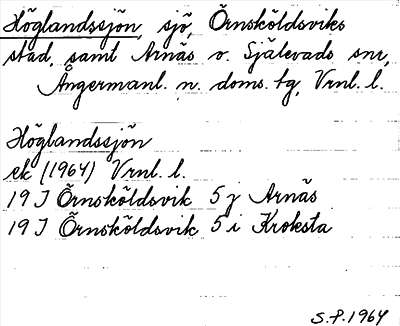 Höglandssjön, sjö, Örnsköldsviks
stad, samt Arnäs o. Själevads snr,
Ångermanl. n. doms. tg, Vrnl. l.
Höglandssjön
ek (1964) Vrnl. l.
19 J Örnsköldsvik 5 j Arnäs
19 J Örnsköldsvik 5 i Kroksta
S.P. 1964